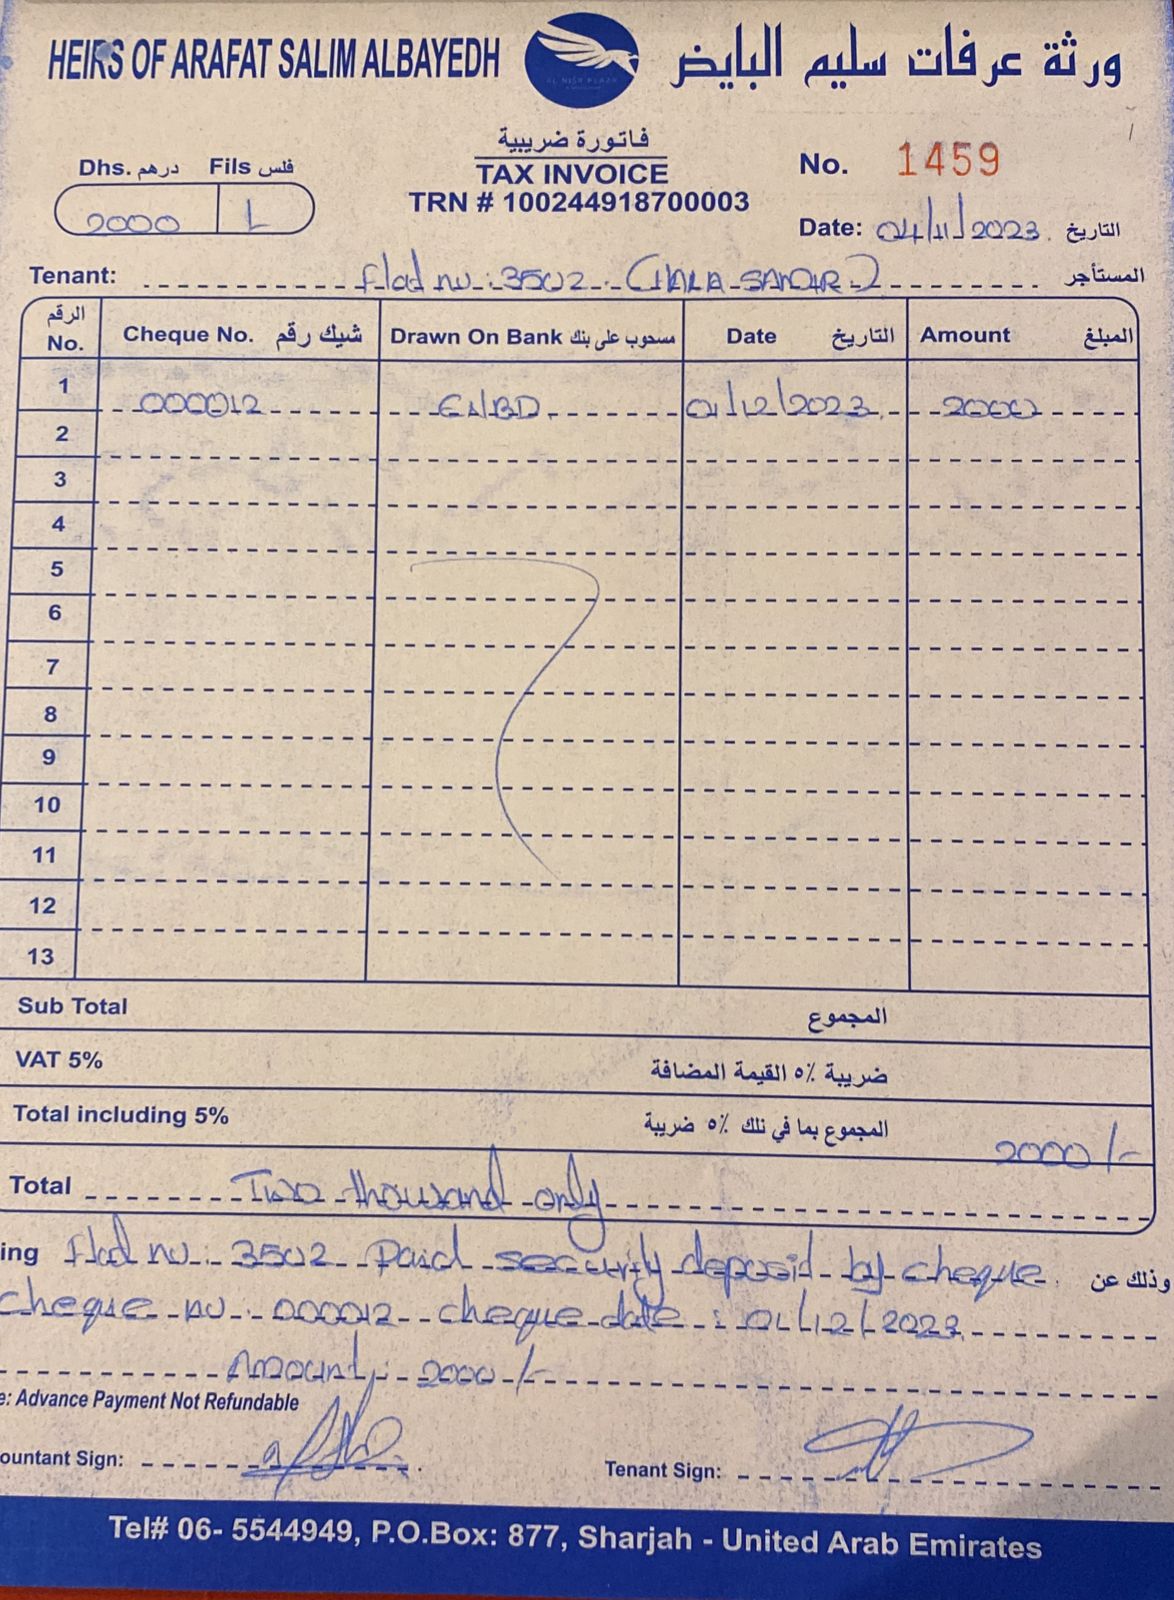 HEIRS OF ARAFAT SALIM ALBAYEDH ورثة عرفات سليم البايض
AL NISR PLAZA
فاتورة ضريبية
TAX INVOICE
TRN # 100244918700003
Dhs. درهم Fils فلس
2000
No. 1459
Date: 04/11/2023 التاريخ
Tenant: Flat no: 3502 (HALA SAMIR) المستأجر
الرقم No. Cheque No. شيك رقم Drawn On Bank مسحوب على بنك Date التاريخ Amount المبلغ
1 000012 ENBD 01/12/2023 2000
2
3
4
5
6
7
8
9
10
11
12
13
Sub Total المجموع
VAT 5% ضريبة ٥٪ القيمة المضافة
Total including 5% المجموع بما في ذلك ٥٪ ضريبة 2000/-
Total Two thousand only
ing Flat no: 3502 Paid security deposit by cheque. وذلك عن
cheque no: 000012 cheque date: 01/12/2023
Amount: 2000/-
e: Advance Payment Not Refundable
ountant Sign: Tenant Sign:
Tel# 06- 5544949, P.O.Box: 877, Sharjah - United Arab Emirates